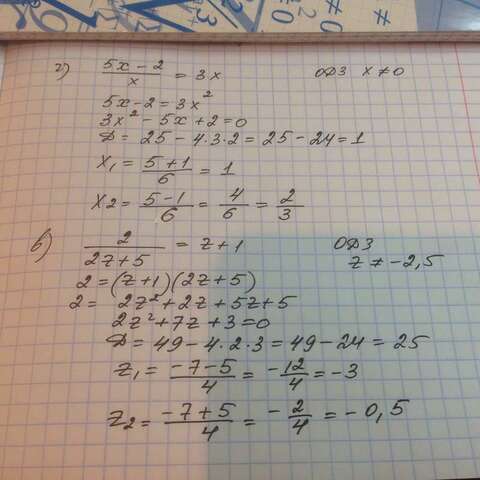 г) (5x - 2)/x = 3x ОДЗ x ≠ 0
5x - 2 = 3x²
3x² - 5x + 2 = 0
D = 25 - 4·3·2 = 25 - 24 = 1
x₁ = (5+1)/6 = 1
x₂ = (5-1)/6 = 4/6 = 2/3
в) 2/(2z+5) = z+1 ОДЗ
z ≠ -2,5
2 = (z+1)(2z+5)
2 = 2z² + 2z + 5z + 5
2z² + 7z + 3 = 0
D = 49 - 4·2·3 = 49 - 24 = 25
z₁ = (-7-5)/4 = -12/4 = -3
z₂ = (-7+5)/4 = -2/4 = -0,5